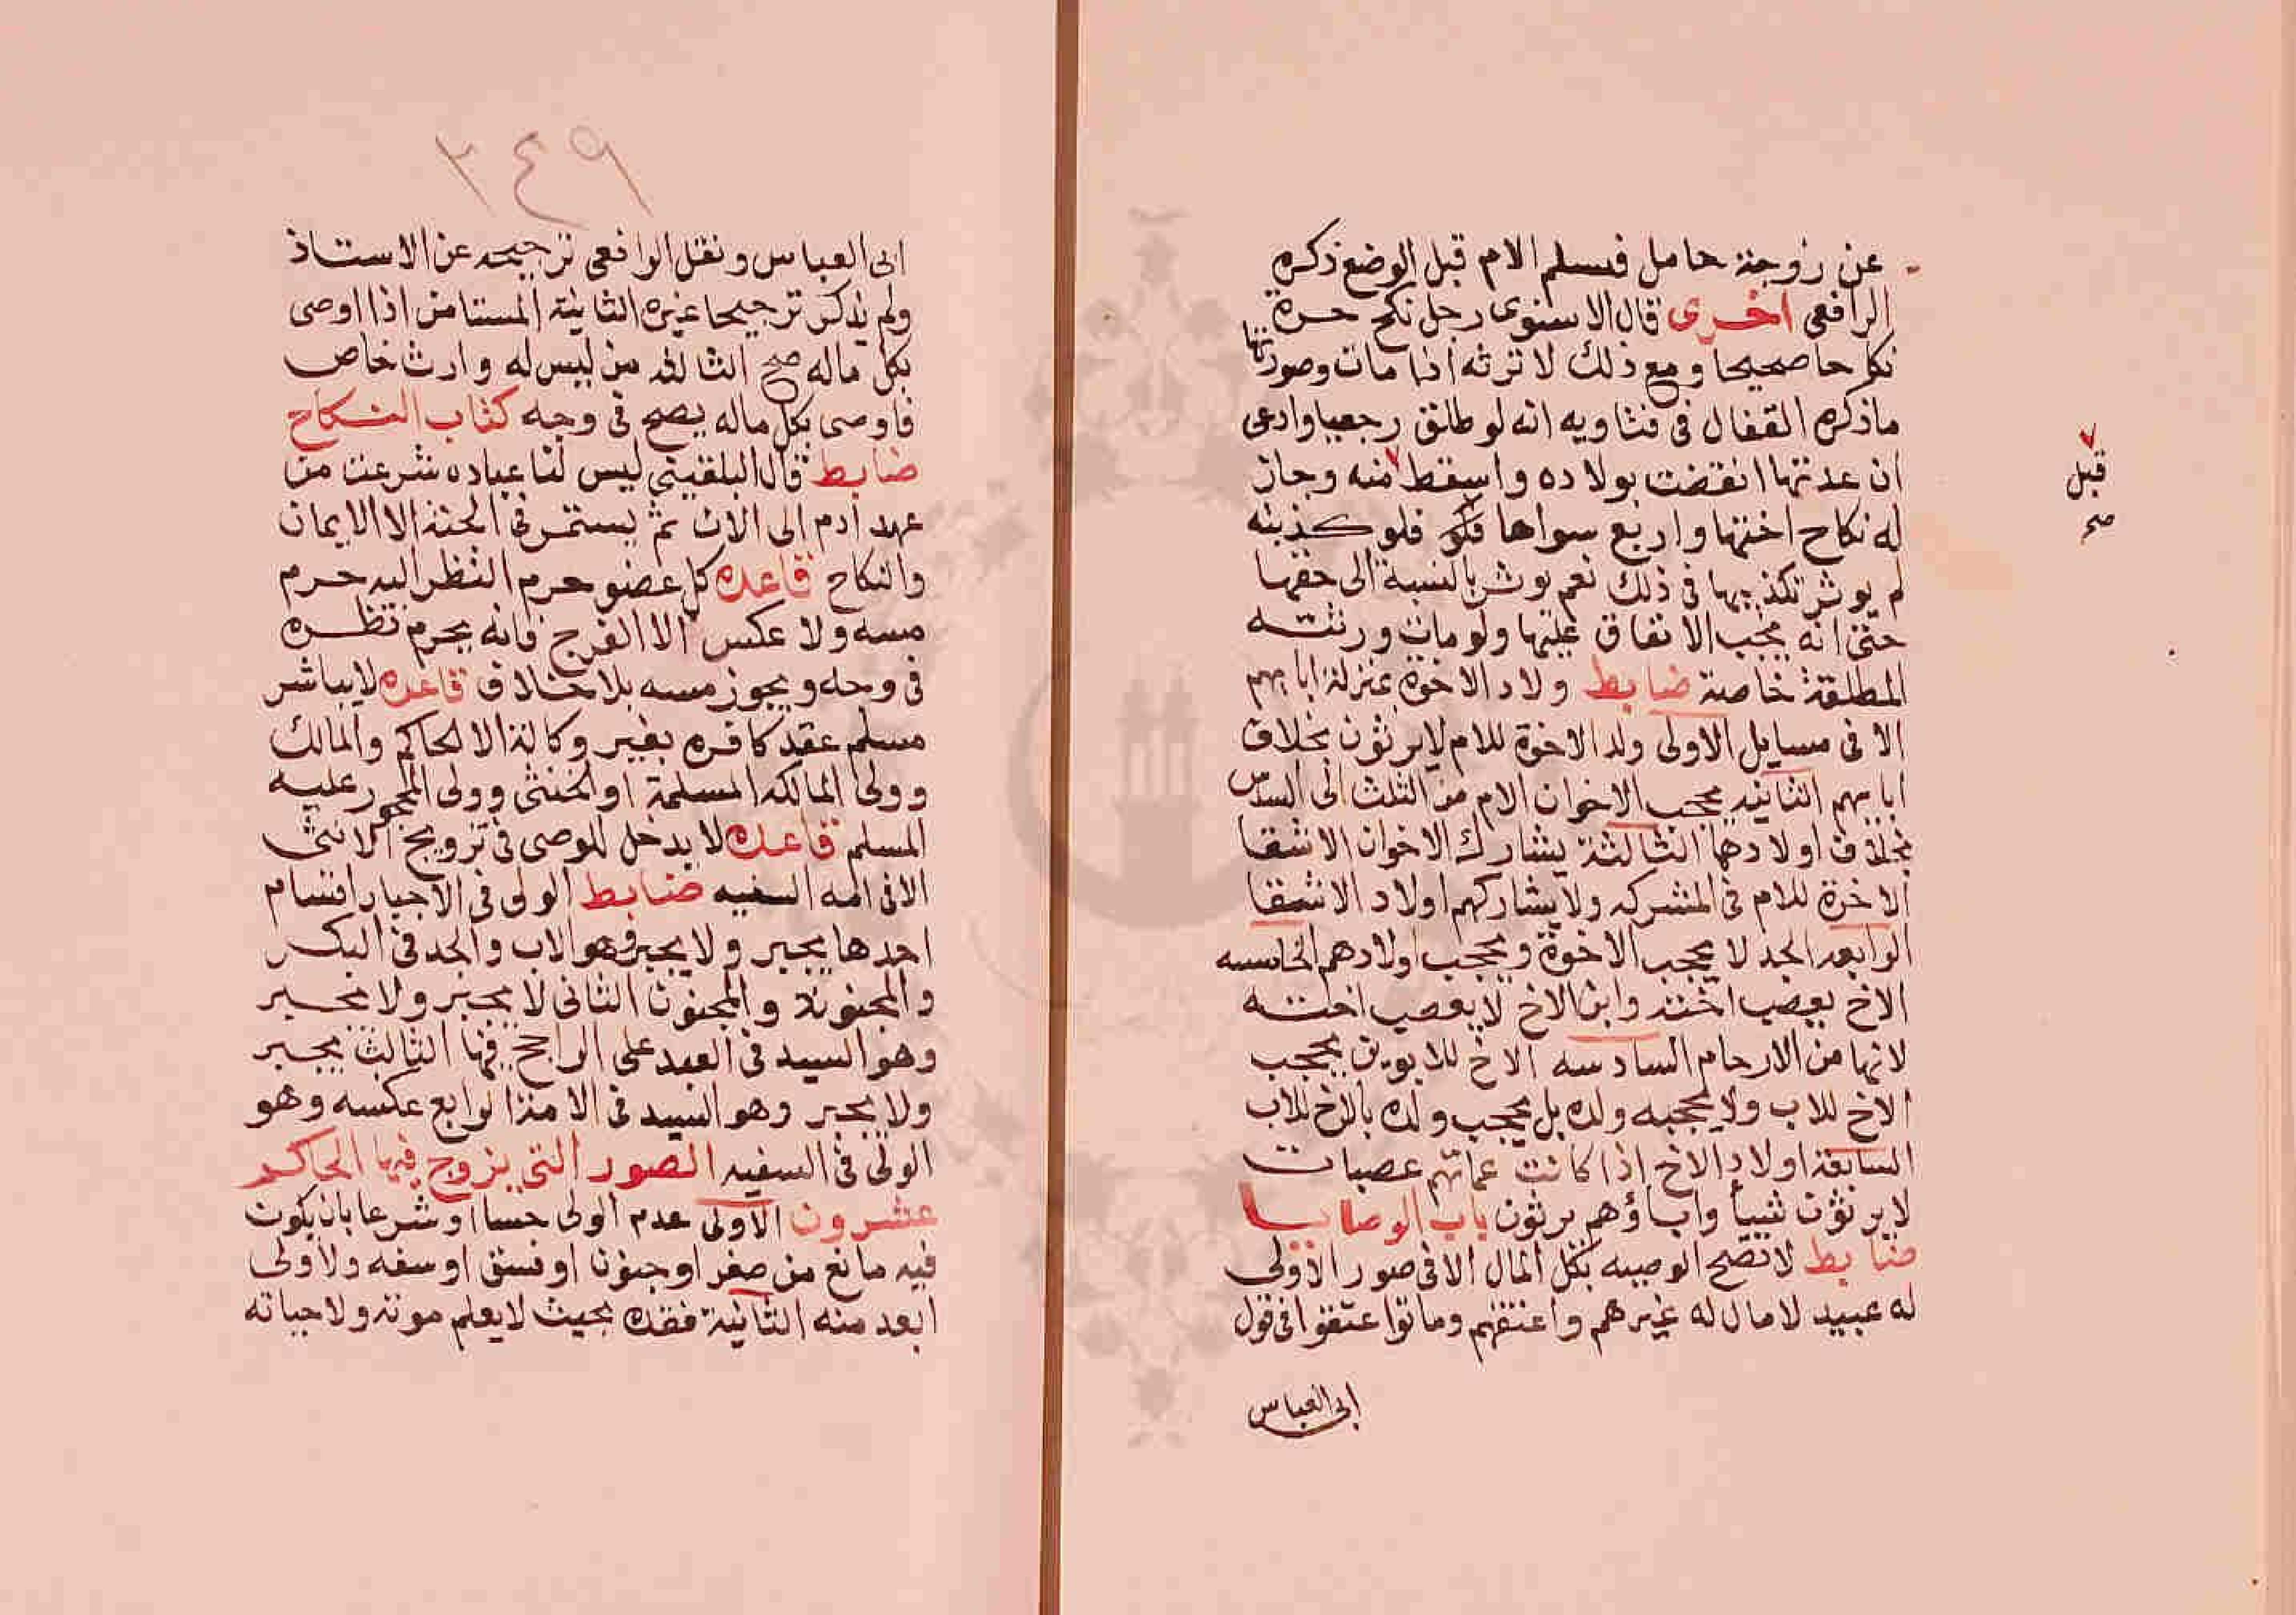 عن زوجة حامل فيسلم الام قبل الوضع ذكره
الرافعى اخرى قال الاسنوى رجل نكح حرة
نكاحا صحيحا ومع ذلك لا ترثه اذا مات وصورتها
ماذكره القفال فى فتاويه انه لو طلق رجعيا وادعى
ان عدتها انقضت بولاده واسقط منه وجاز
له نكاح اختها واربع سواها فلو كذبته
لم يوثر تكذيبها فى ذلك نعم يوثر بالنسبة الى حقها
حتى انه يجب الانفاق عليها ولومات ورثته
المطلقة خاصة ضابط ولاد الاخوة بمنزلة ابايهم
الا فى مسايل الاولى ولد الاخوة للام لايرثون بخلاف
ابايهم الثانيه يحجب الاخوان الام من الثلث الى السدس
بخلاف اولادهما الثالثة يشارك الاخوان الاشقا
الاخوة للام فى المشركه ولا يشاركهم اولاد الاشقا
الرابعه الجد لا يحجب الاخوة ويحجب اولادهم الخامسه
الاخ يعصب اخته وابن الاخ لا يعصب اخته
لانها من الارحام السادسه الاخ للابوين يحجب
الاخ للاب ولا يحجبه ولده بل يحجب ولده بالاخ للاب
السابعة اولاد الاخ اذا كانت عماتهم عصبات
لا يرثون شيا واباؤهم يرثون باب الوصايا
ضابط لا تصح الوصيه بكل المال الا فى صور الاولى
له عبيد لا مال له غيرهم واعتقهم وماتوا عتقوا فى قول
ابى العباس
قبل
صح
٣٤٩
ابى العباس ونقل الرافعى ترجيحه عن الاستاذ
ولم يذكر ترجيحا غيره الثانية المستامن اذا اوصى
بكل ماله صح الثالثه من ليس له وارث خاص
فاوصى بكل ماله يصح فى وجه كتاب النكاح
ضابط قال البلقينى ليس لنا عباده شرعت من
عهد ادم الى الان ثم يستمر فى الجنة الا الايمان
والنكاح قاعده كل عضو حرم النظر اليه حرم
مسه ولا عكس الا الفرج فانه يحرم نظره
فى وجه ويجوز مسه بلا خلاف قاعده لايباشر
مسلم عقد كافره بغير وكالة الا الحاكم والمالك
وولى المالكه المسلمة او الخنثى وولى المحجور عليه
المسلم قاعده لا يدخل للوصى فى تزويج الانثى
الا فى امه السفيه ضابط الولى فى الاجبار اقسام
احدها يجبر ولا يجبر وهو الاب والجد فى البكر
والمجنونة والمجنون الثانى لا يجبر ولا يجبر
وهو السيد فى العبد على الراجح فيها الثالث يجبر
ولا يجبر وهو السيد فى الامة الرابع عكسه وهو
الولى فى السفيه الصور التى يزوج فيها الحاكم
عشرون الاولى عدم الولى حسا او شرعا بان يكون
فيه مانع من صغر او جنون او فسق او سفه ولا ولى
ابعد منه الثانية فقده بحيث لا يعلم موته ولا حياته